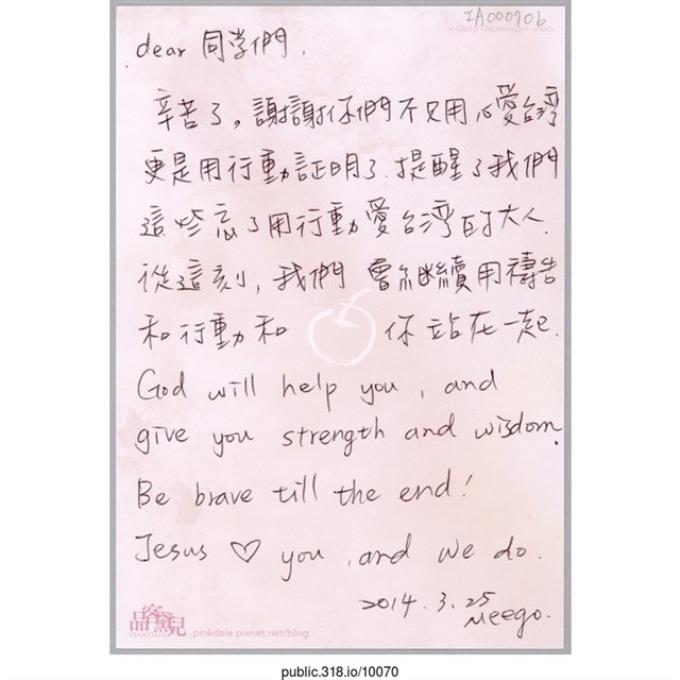 IA00070b
dear 同学們.
辛苦了。謝謝你們不只用心愛台灣
更是用行動証明了.提醒了我們
這些忘了用行動愛台灣的大人.
從這刻,我們 會繼續用禱告
和行動和 你站在一起.
God will help you, and
give you strength and wisdom.
Be brave till the end!
Jesus ♡ you, and we do.
2014.3.25
Meego.
品客黛兒
PINKDALE
pinkdale.pixnet.net/blog
public.318.io/10070